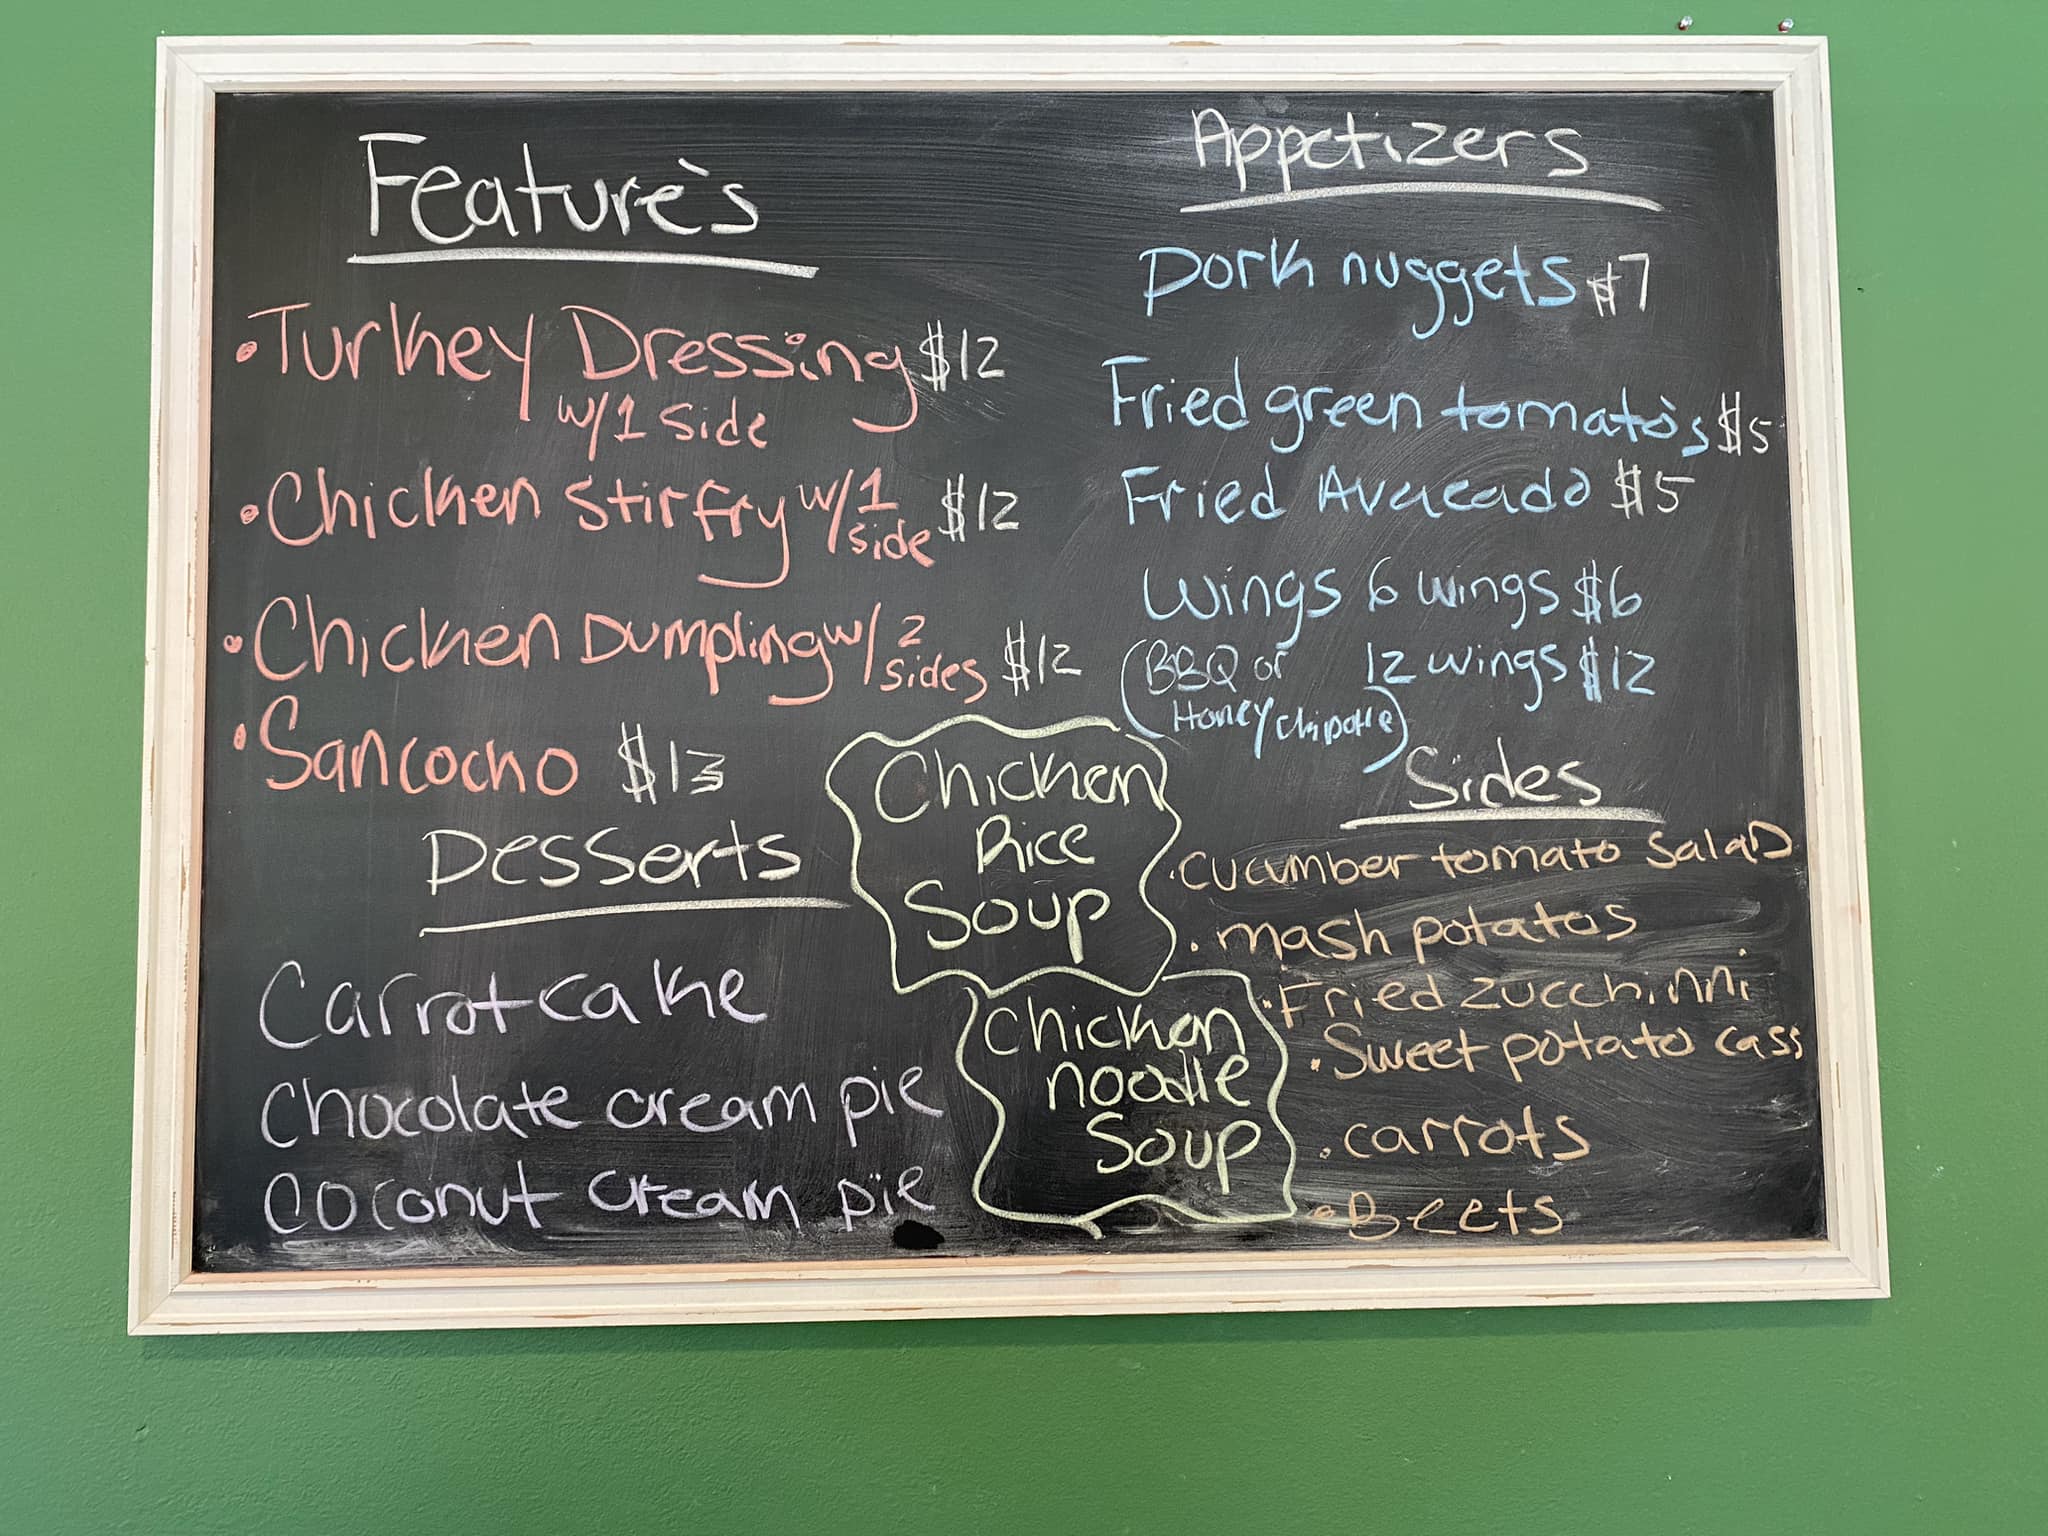 Feature's
• Turkey Dressing $12
w/1 side
• Chicken stirfry w/1 side $12
• Chicken Dumpling w/2 sides $12
• Sancocho $13
Desserts
Carrot cake
Chocolate cream pie
Coconut cream pie
Chicken
Rice
Soup
Chicken
noodle
Soup
Appetizers
Pork nuggets $7
Fried green tomato's $5
Fried Avacado $5
Wings 6 wings $6
(BBQ or 12 wings $12
Honey chipotle)
Sides
• cucumber tomato salad
• mash potatos
• Fried zucchinni
• Sweet potato cass
• carrots
• Beets